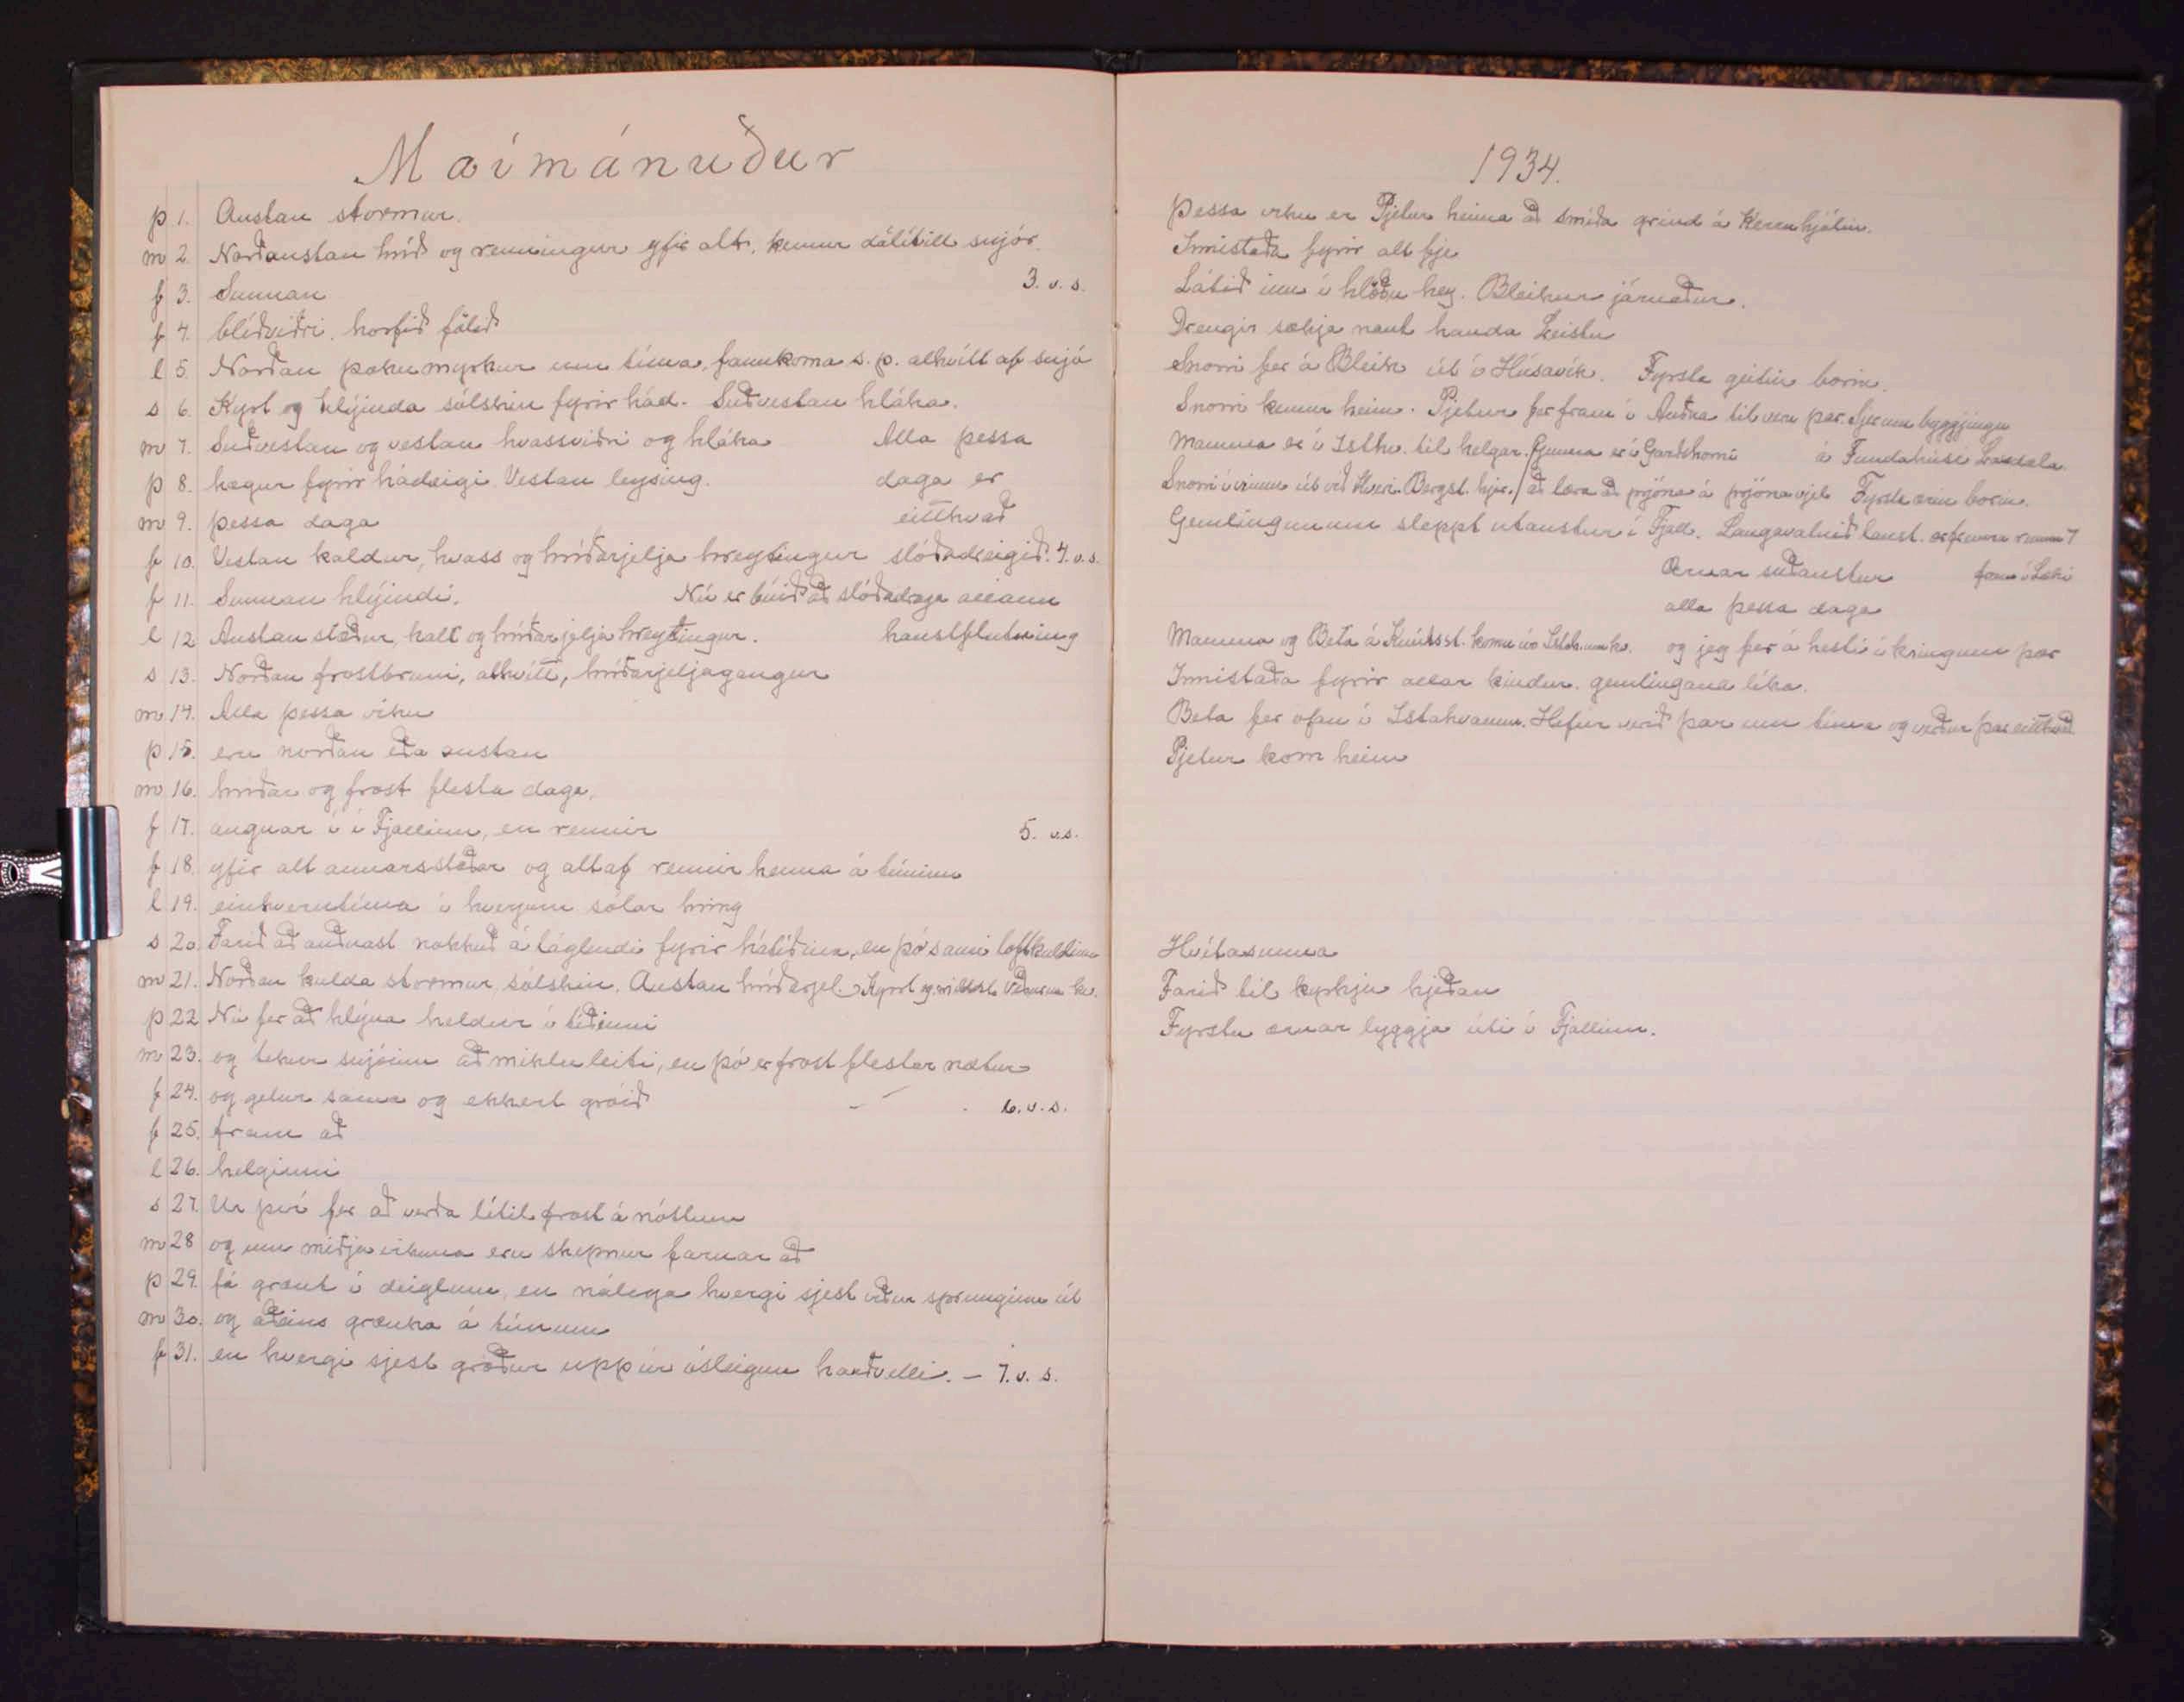 Maímánuður
þ 1. Austan stormur.
m 2. Norðaustan hríð og renningur yfir alt, kemur dálítill snjór.
f 3. Sunnan 3. v. s.
f 4. blíðviðri. horfið fölið
l 5. Norðan þoku myrkur um tíma, fannkoma s. p. alhvítt af snjó
s 6. Kyrt og hlýinda sólskin fyrir hád. Suðvestan hláka.
m 7. Suðvestan og vestan hvassviðri og hláka Alla þessa
þ 8. hægur fyrir hádeigi. Vestan leysing. daga er
m 9. þessa daga eitthvað
f 10. Vestan kaldur, hvass og hríðarjelja hreytingur slóðadreigið. 4. v. s.
f 11. Sunnan hlýindi. Nú er búið að slóðadraga allann
l 12 Austan stæður, kalt og hríðarjelja hreytingur. haustflutning
s 13. Norðan frostbruni, alhvítt, hríðarjeljagangur
m 14. Alla þessa viku
þ 15. eru norðan eða austan
m 16. hríðar og frost flesta daga,
f 17. í Fjallinu, en rennir 5. v.s.
f 18. yfir alt annarsstaðar og altaf rennir hema á túninu
l 19. einhverntíma í hverjum sólar hring
s 20 Farið að auðnast nokkuð á láglendi fyrir hátíðina, en þó sami loftkuldinn
m 21. Norðan kulda stormur, sólskin. Austan hríðarjel. Kyrt og
þ 22 Nú fer að hlýna heldur í tíðinni
m 23. og tekur snjóinn að miklu leiti, en þó er frost flestar nætur
f 24. og getur sama og ekkert gróið 6. v. s.
f 25. fram að
l 26. helginni
s 27. Úr því fer að verða lítil frost á nóttum
m 28 og um miðja vikuna eru skepnur farnar að
þ 29. fá grænt í deiglum, en nálega hvergi sjest viður sprunginn út
m 30. og aðeins grænka á túnum
f 31. en hvergi sjest gróður uppúr ósleignu harðvelli. – 7. v. s.
1934.
Þessa viku er Pjetur heima að smíða grind á Kerruhjólin.
Innistaða fyrir alt fje
Látið inn í hlöðu hey. Bleikur járnaður.
Drengir sækja naut handa Leistu
Snorri fer á Bleik út í Húsavík. Fyrsta geitin borin.
Snorri kemur heim. Pjetur fer fram í Auðna til veru þar. byggjingu
Mamma er í Ísthv. til helgar. Gunna er í Garðshorni á Fundahúsi Laxdæla
Snorri í vinnu út við Hveri. Bergst. hjer. að læra að prjóna á prjónavjel Fyrsta ærin borin.
Gemlingunum sleppt utanstur í Fjall. Laugavatnið laust.
Ærnar suðaustur
alla þessa daga
Mamma og Beta á Knútsst. komu úr Ísthv. og jeg fer á hesti í kringum þær
Innistaða fyrir allar kindur. gemlingana líka.
Beta fer ofan í Ístahvamm. Hefur verið þar um tíma og verður þar eitthvað
Pjetur kom heim
Hvítasunna
Farið til kyrkju hjeðan
Fyrstu ærnar lyggja úti í Fjallinu.